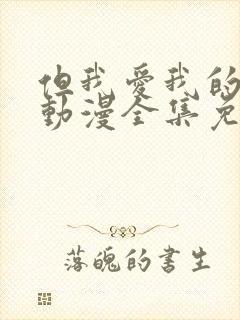 但我愛我的
動漫全集免
落魄的書生